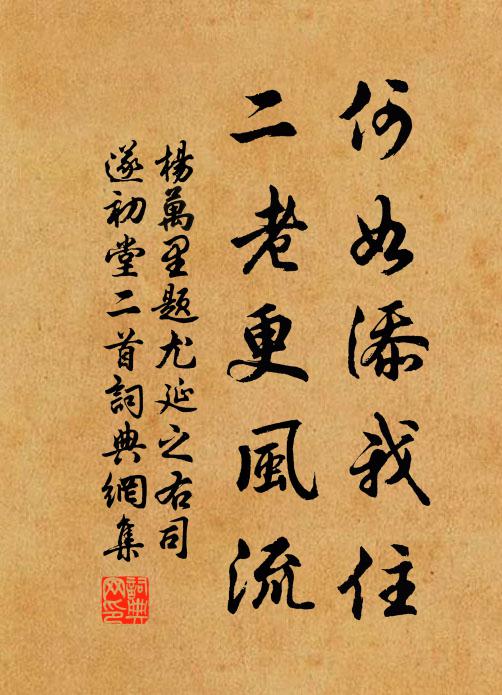 何如添我住
二老更風流
楊萬里題尤延之右司
遂初堂二首詞典網集
詞典網印